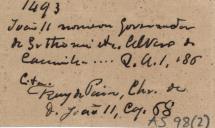 1493
João II nomeou Governador
de S. Thomé A. Alvaro de
Caminha .... R. A. I, 186
Cita:
Ruy de Pina, Chr. de
D. João II, Cap. 68
AS 98(2)